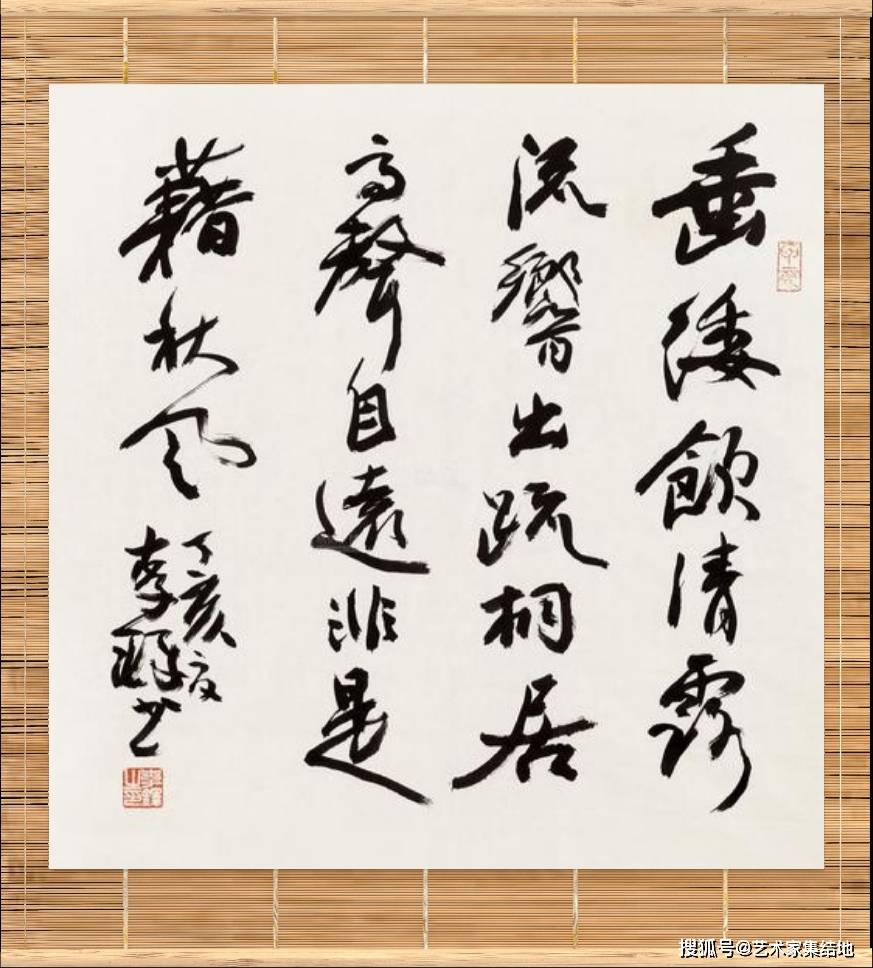 垂緌飲清露
流響出疏桐居
高聲自遠非是
藉秋風
丁亥夏
李鐸書
李鐸之印
搜狐号@艺术家集结地